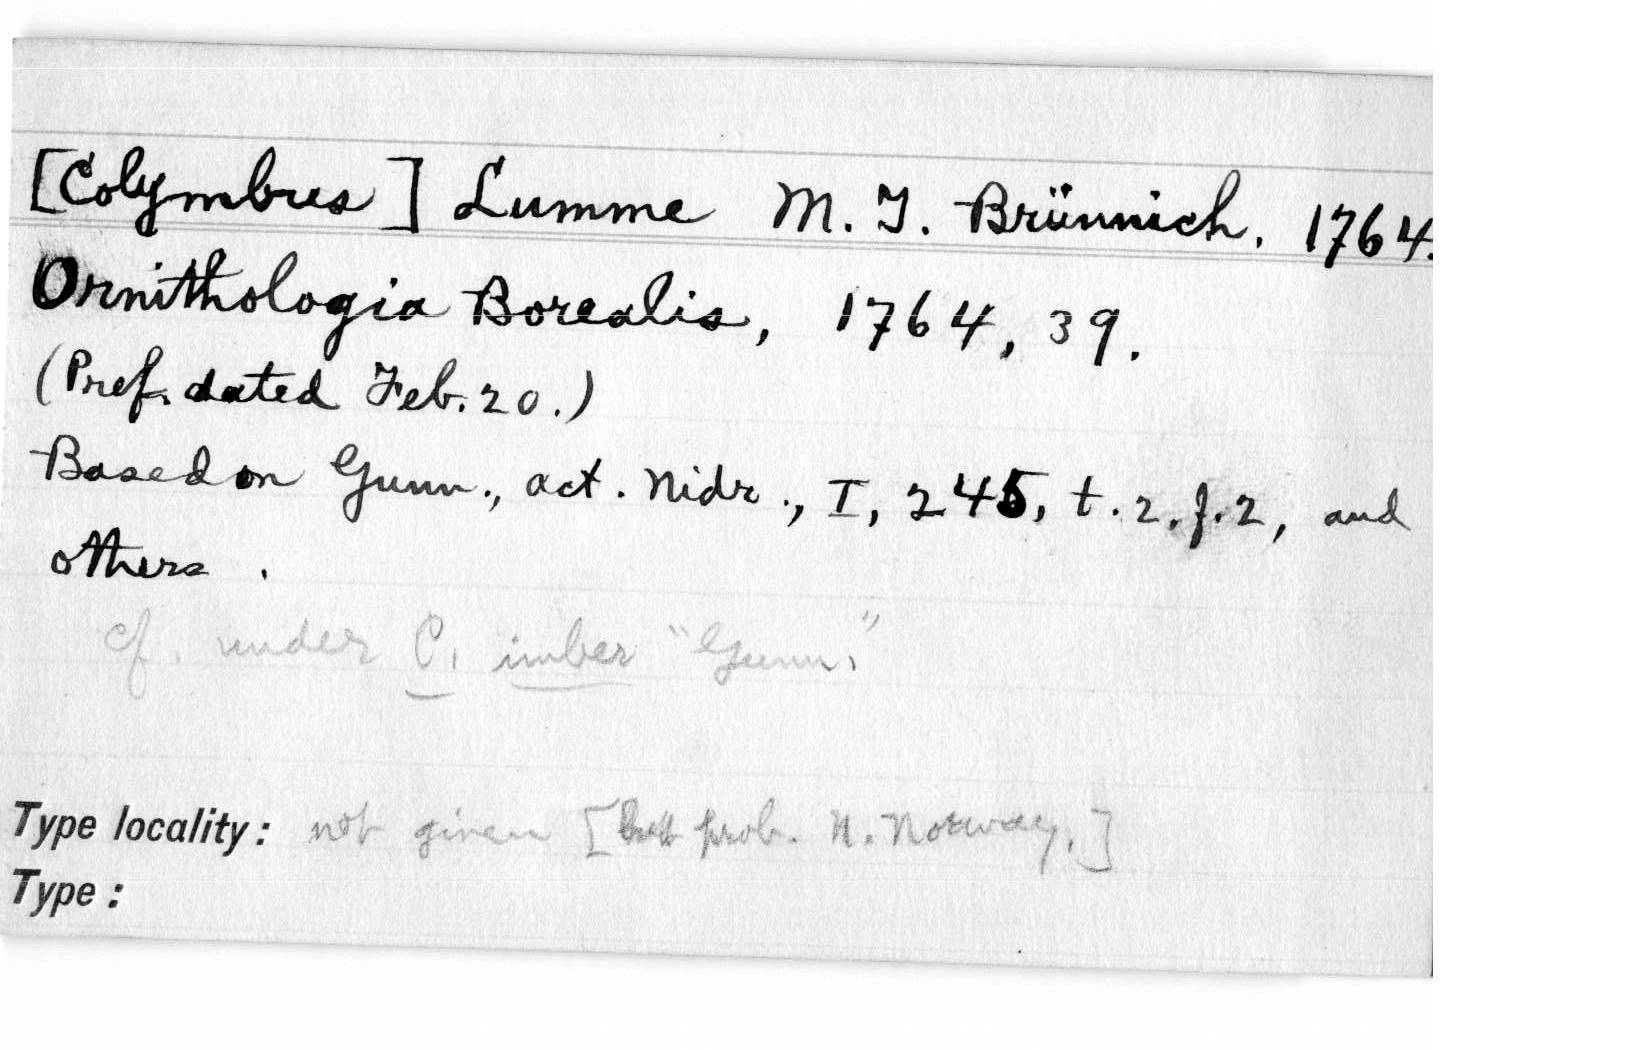 [Colymbus] Lumme M. T. Brünnich. 1764.
Ornithologia Borealis, 1764, 39.
(Pref. dated Feb. 20.)
Based on Gunn., act. Nidr., I, 245, t. 2. f. 2, and
others.
cf. under C. imber "Gunn."
Type locality: not given [but prob. N. Norway.]
Type: